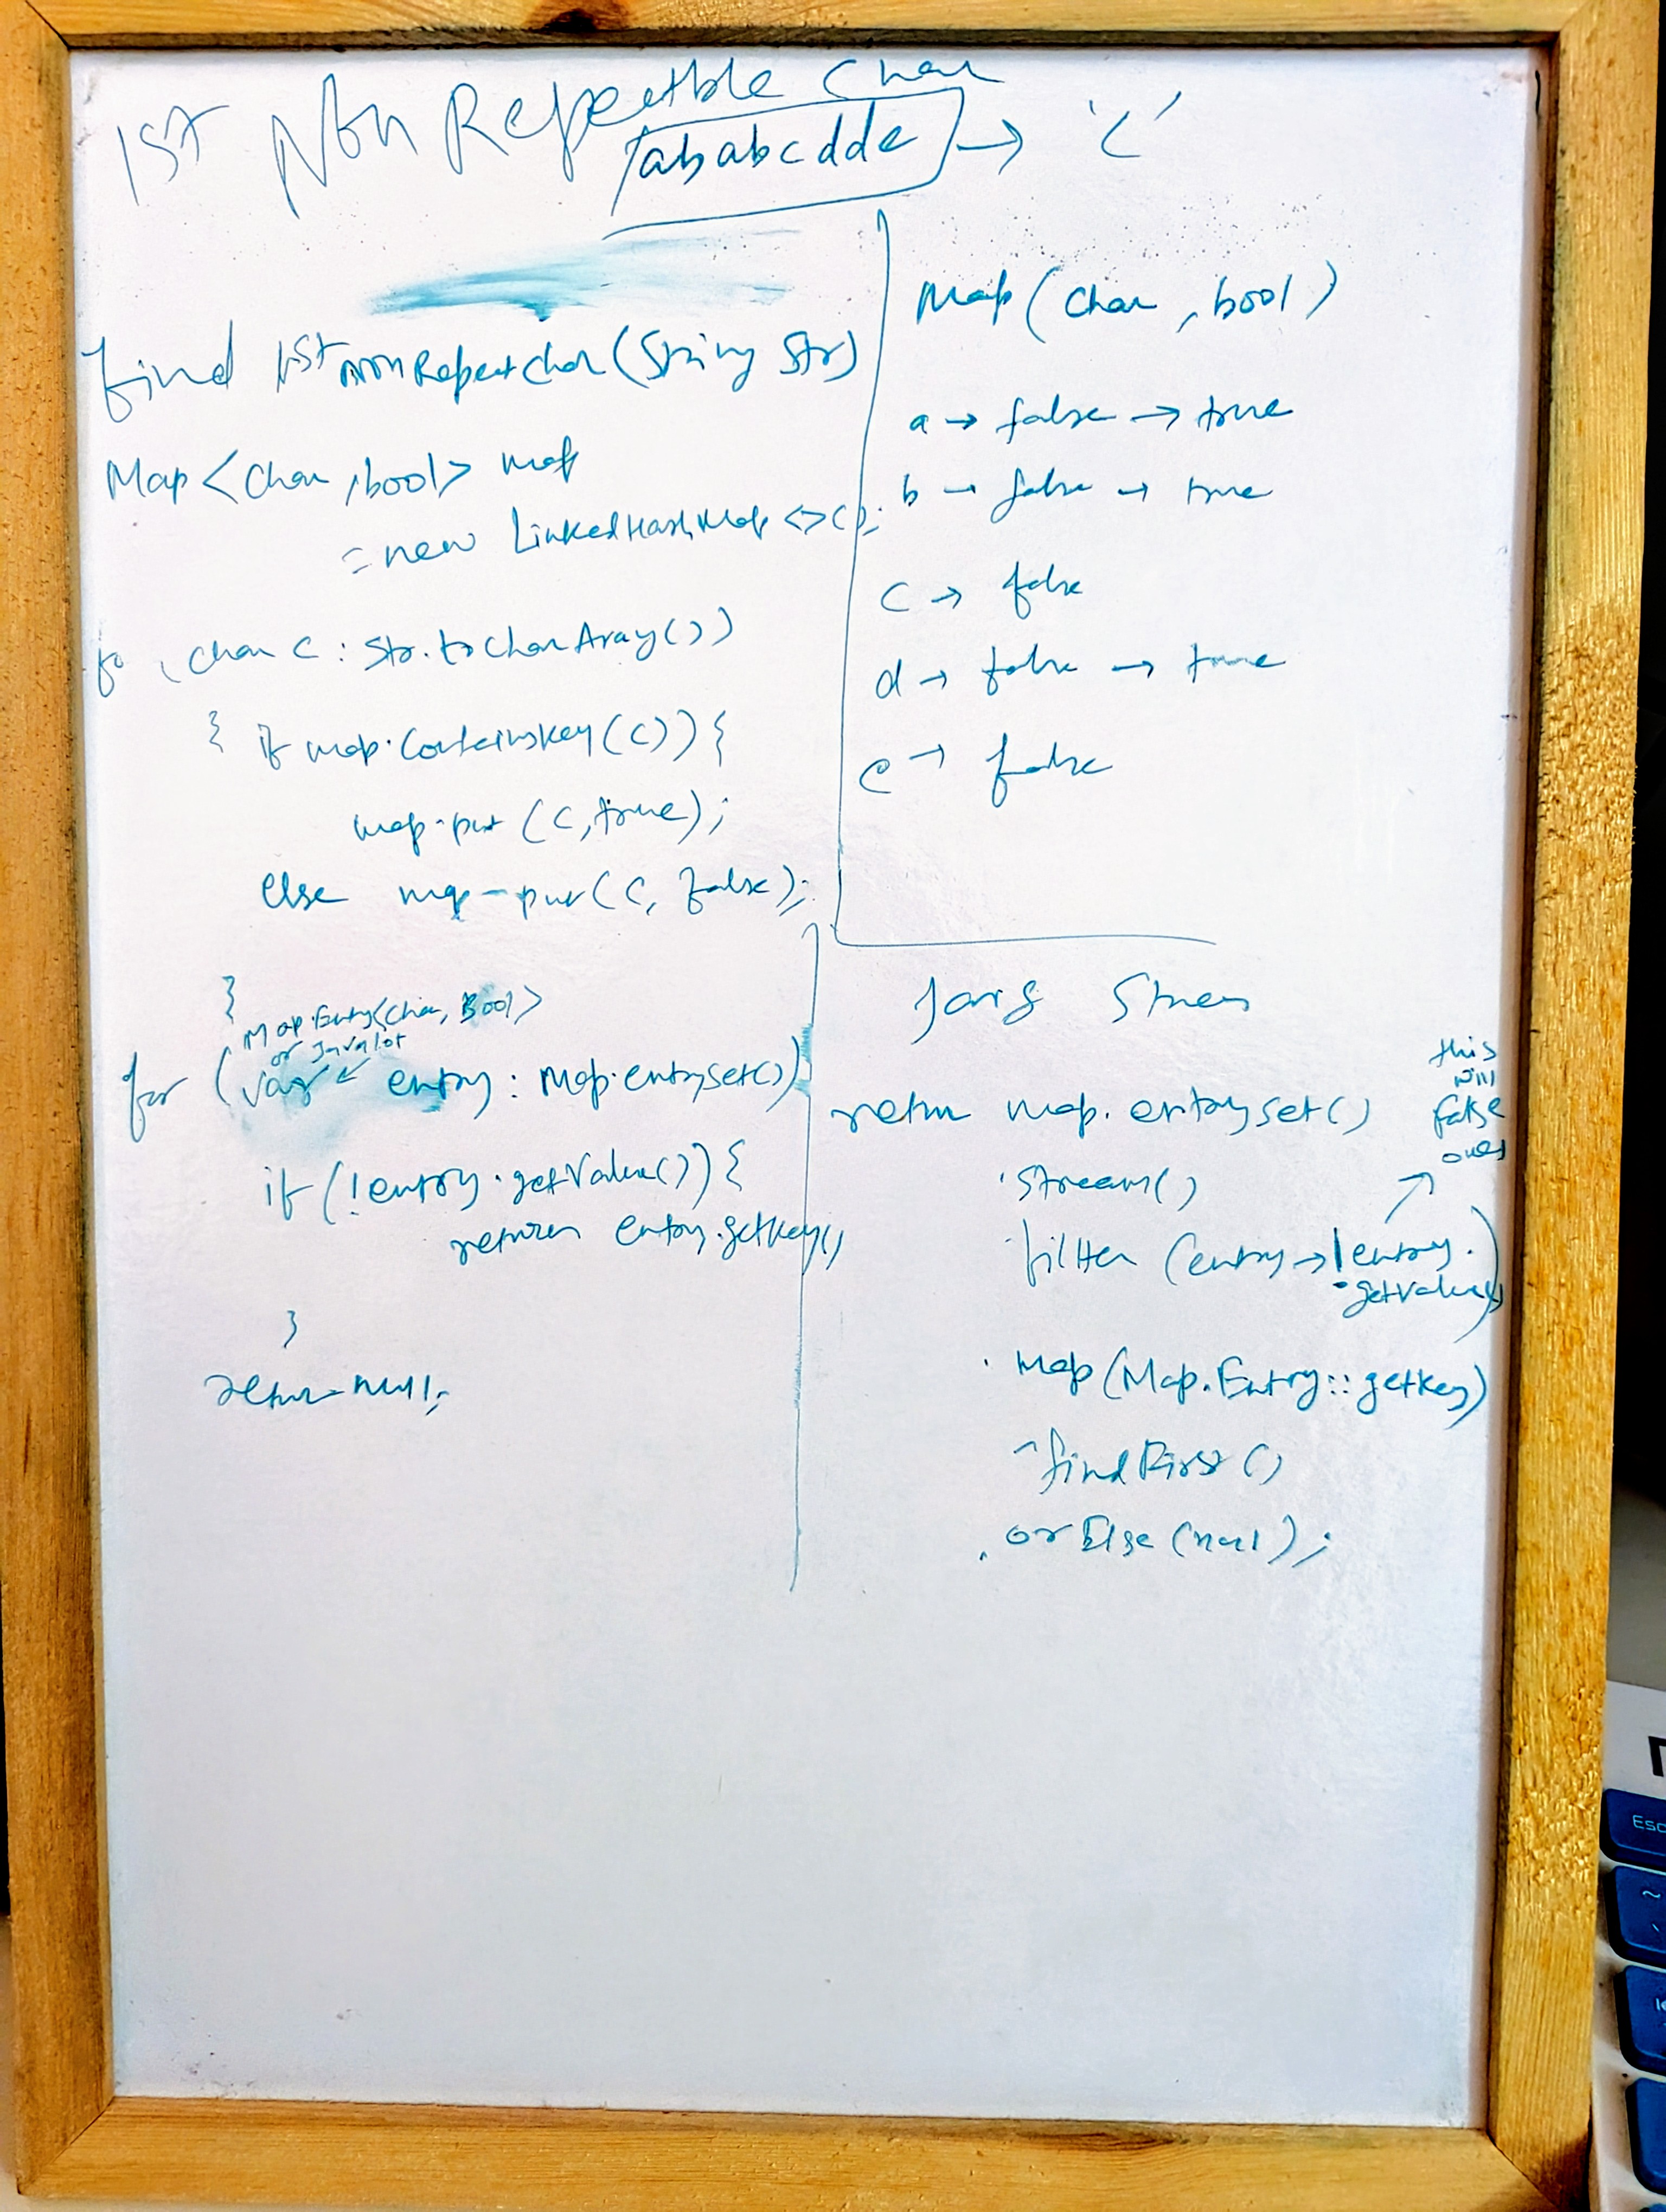 1st Non Repeatble Char
ababcdde → 'c'
find 1st nonRepeatChar(String str)
Map<Char, bool> map
= new LinkedHashMap<>();
fo (char c : str.toCharAray())
{ if map.containskey(c)) {
map.put (c, true);
else map-put(c, false);
}
Map.Entry<Char, Bool>
or
for (var ← entry : Map.entrySet())
if (!entry.getValue()) {
return entry.getkey()
}
return null;
Map(Char, bool)
a → false → true
b → false → true
c → false
d → false → true
e → false
return map.entryset()
.stream()
filter (entry → !entry.
.getValue())
this
will
false
ones
.Map(Map.Entry::getkey)
.findFirst()
.orElse(null);
Esc
~